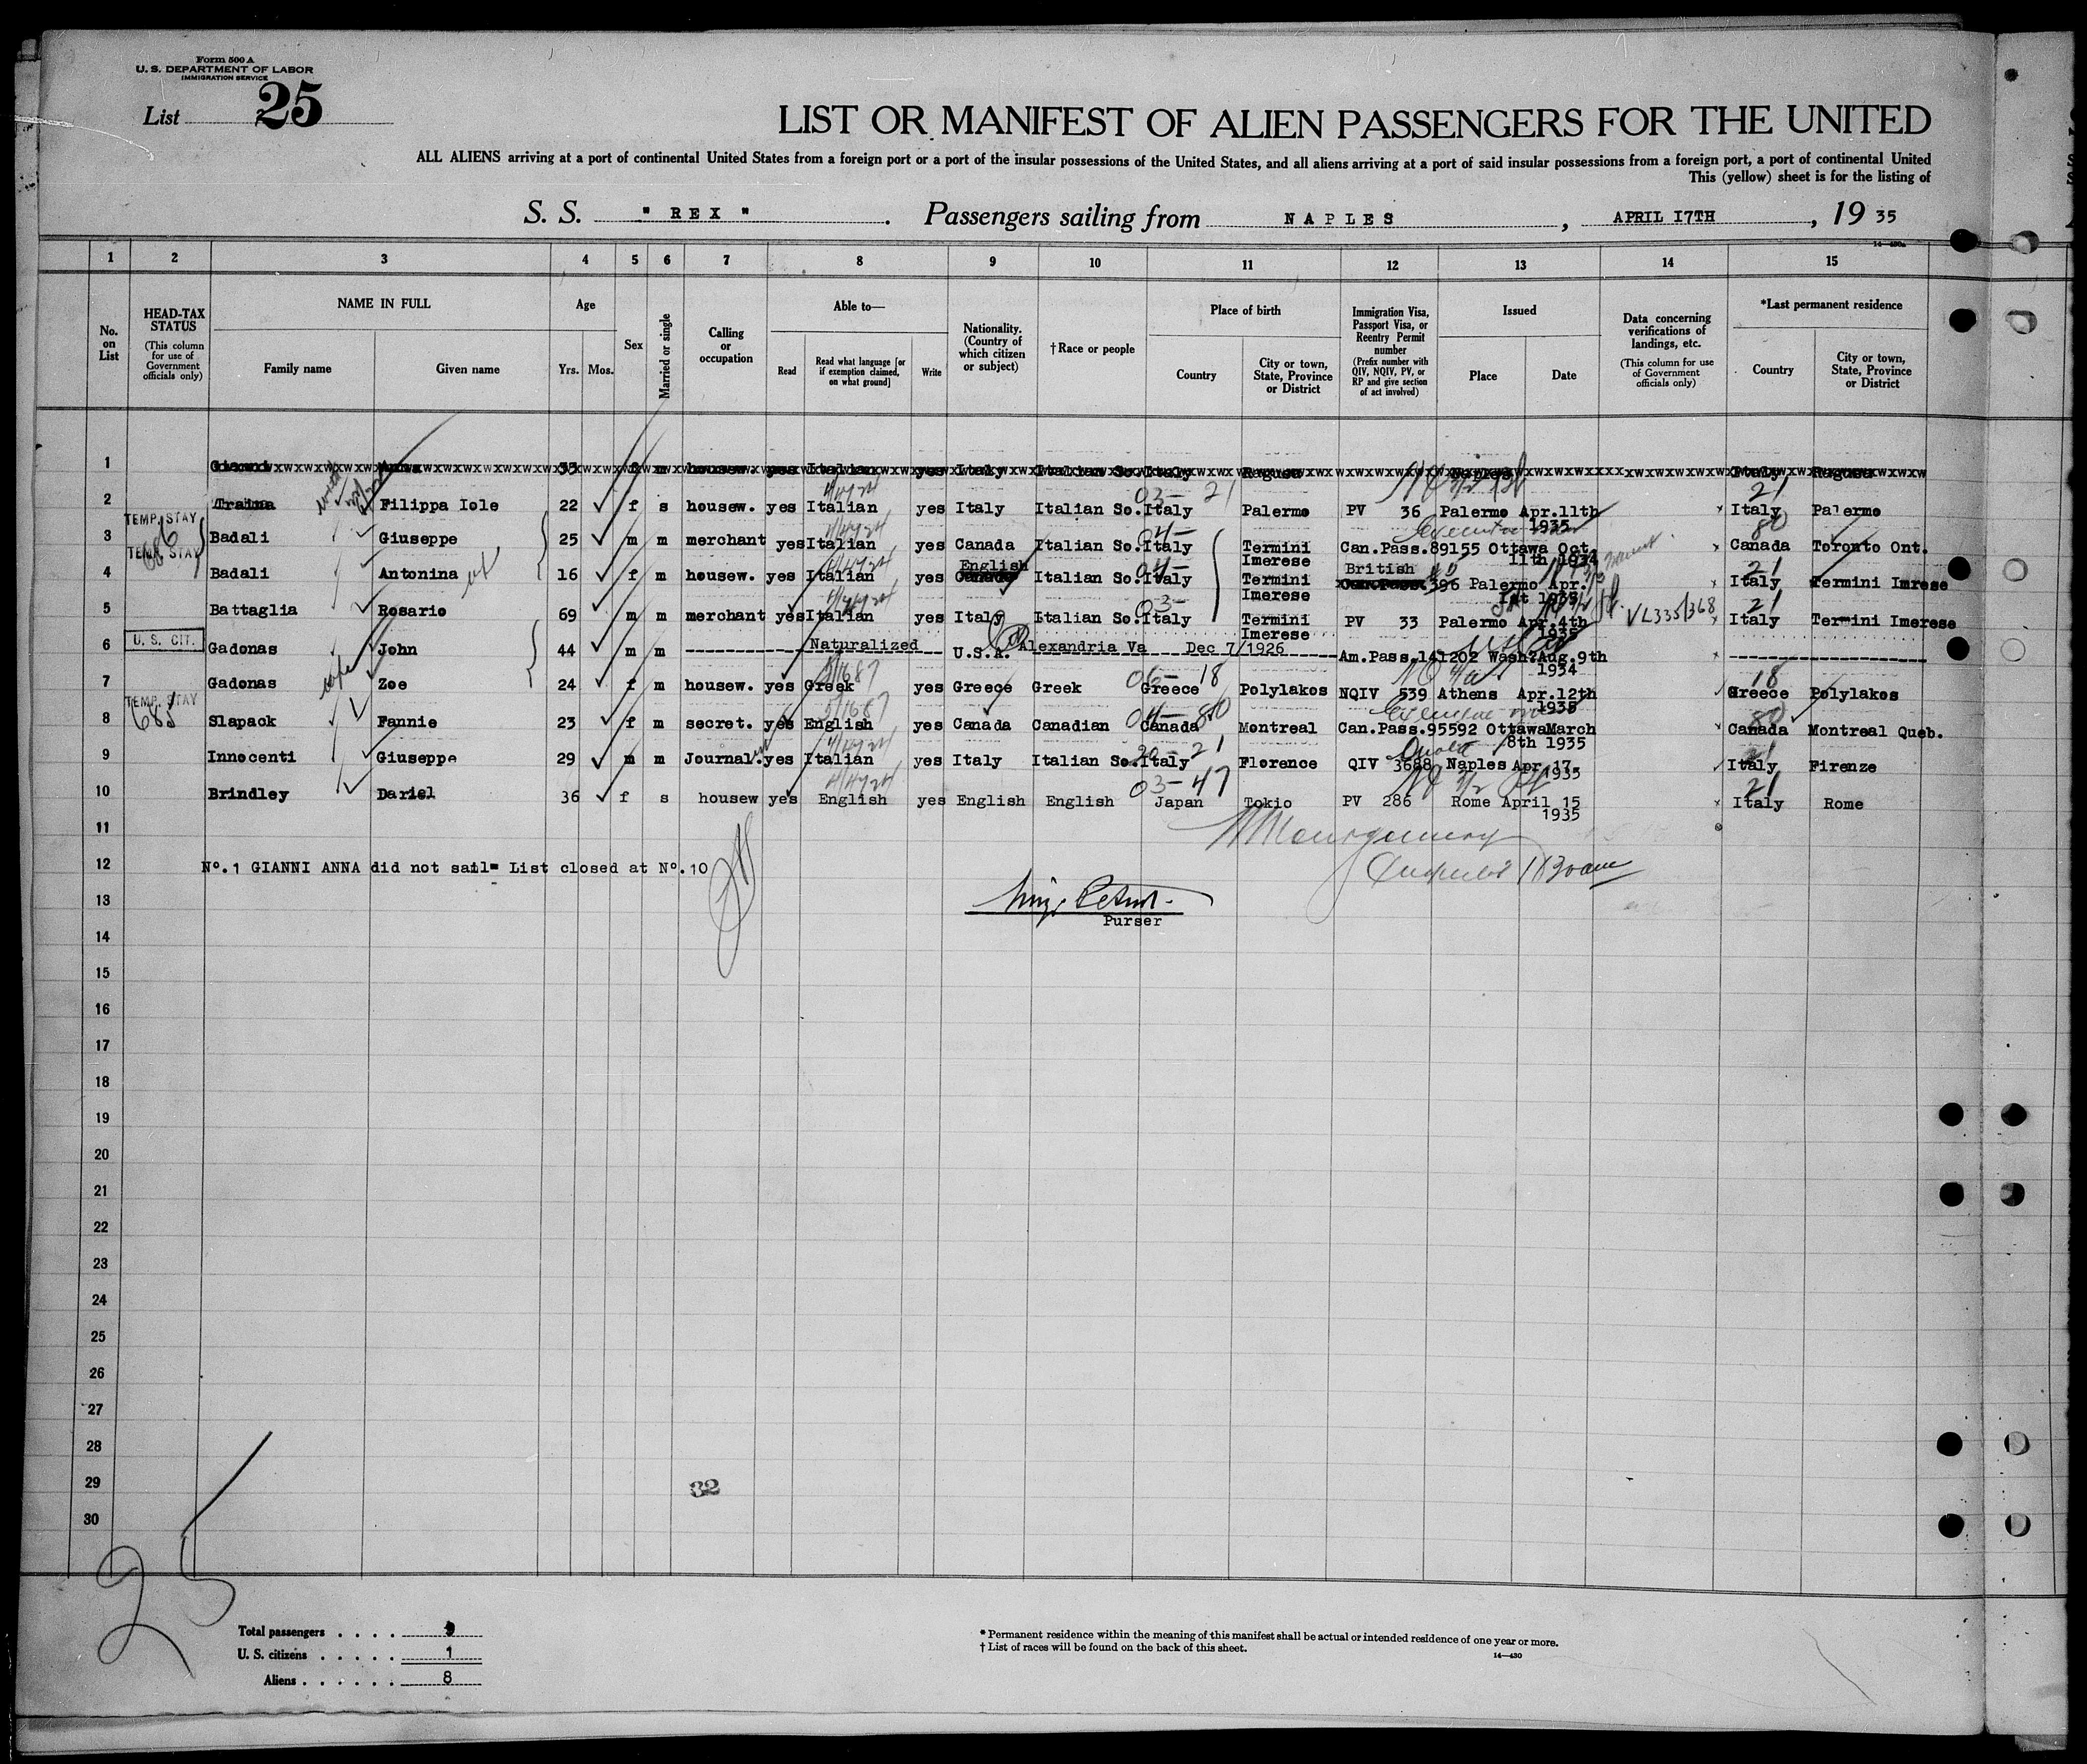 Form 500 A
U. S. DEPARTMENT OF LABOR
IMMIGRATION SERVICE
List 25
LIST OR MANIFEST OF ALIEN PASSENGERS FOR THE UNITED
ALL ALIENS arriving at a port of continental United States from a foreign port or a port of the insular possessions of the United States, and all aliens arriving at a port of said insular possessions from a foreign port, a port of continental United
This (yellow) sheet is for the listing of
S. S. " REX " . Passengers sailing from NAPLES , APRIL I7TH , 19 35
14—430a
1 2 3 4 5 6 7 8 9 10 11 12 13 14 15
No. on List
HEAD-TAX STATUS
(This column for use of Government officials only)
NAME IN FULL
Family name
Given name
Age
Yrs. Mos.
Sex
Married or single
Calling or occupation
Able to—
Read
Read what language [or if exemption claimed, on what ground]
Write
Nationality. (Country of which citizen or subject)
†Race or people
Place of birth
Country
City or town, State, Province or District
Immigration Visa, Passport Visa, or Reentry Permit number
(Prefix number with QIV, NQIV, PV, or RP and give section of act involved)
Issued
Place
Date
Data concerning verifications of landings, etc.
(This column for use of Government officials only)
*Last permanent residence
Country
City or town, State, Province or District
1 Gianni Anna 35 f m housew. yes Italian yes Italy Italian So. Italy Ragusa Naples Italy Ragusa
2 Traina Filippa Iole 22 f s housew. yes Italian yes Italy Italian So. Italy Palermo PV 36 Palermo Apr.11th 1935 Italy Palermo
03— 21
21
TEMP. STAY
3 Badali Giuseppe 25 m m merchant yes Italian yes Canada Italian So. Italy Termini Imerese Can.Pass.89155 Ottawa Oct 11th 1934 Canada Toronto Ont.
04—
80
TEMP. STAY
4 Badali Antonina 16 f m housew. yes Italian yes English Canada Italian So. Italy Termini Imerese British Can.Pass. 396 Palermo Apr. 1st 1935 Italy Termini Imrese
04—
21
5 Battaglia Rosario 69 m m merchant yes Italian yes Italy Italian So. Italy Termini Imerese PV 33 Palermo Apr.4th 1935 VL335/368 Italy Termini Imerese
03—
21
U. S. CIT.
6 Gadonas John 44 m m Naturalized U.S.A. Alexandria Va Dec 7/1926 Am.Pass.141202 Wash. Aug.9th 1934
7 Gadonas Zoe 24 f m housew. yes Greek yes Greece Greek Greece Polylakos NQIV 539 Athens Apr.12th 1935 Greece Polylakos
06— 18
18
TEMP. STAY
8 Slapack Fannie 23 f m secret. yes English yes Canada Canadian Canada Montreal Can.Pass.95592 Ottawa March 8th 1935 Canada Montreal Queb.
04— 80
80
9 Innocenti Giuseppe 29 m m Journal. yes Italian yes Italy Italian So. Italy Florence QIV 3688 Naples Apr.17. 1935 Italy Firenze
20— 21
21
10 Brindley Dariel 36 f s housew yes English yes English English Japan Tokio PV 286 Rome April 15 1935 Italy Rome
03— 47
21
11
12 Nº.1 GIANNI ANNA did not sail= List closed at Nº.10
13
Purser
14
15
16
17
18
19
20
21
22
23
24
25
26
27
28
29
30
32
25
Total passengers . . . . 9
U. S. citizens . . . . . 1
Aliens . . . . . . 8
* Permanent residence within the meaning of this manifest shall be actual or intended residence of one year or more.
† List of races will be found on the back of this sheet.
14—430